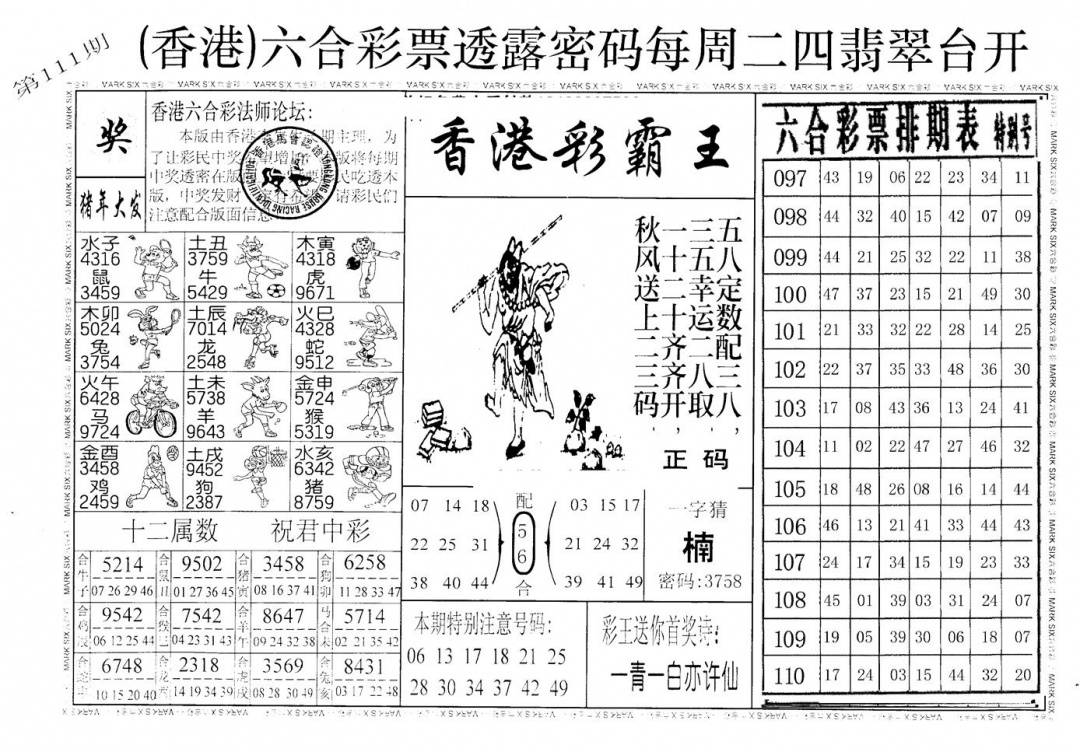 第111期
(香港)六合彩票透露密码每周二四翡翠台开
奖
猪年大发
香港六合彩法师论坛:
本版由香港
主理，为
了让彩民中奖
版将每期
中奖透密在版
民吃透本
版，中奖发财
请彩民们
注意配合版面信息
水子 土丑 木寅
4316 3759 4318
鼠 牛 虎
3459 5429 9671
木卯 土辰 火巳
5024 7014 4328
兔 龙 蛇
3754 2548 9512
火午 土未 金申
6428 5738 5724
马 羊 猴
9724 9643 5319
金酉 土戌 水亥
3458 9452 6342
鸡 狗 猪
2459 2387 8759
十二属数 祝君中彩
5214 9502 3458 6258
07 26 29 46 01 27 36 45 08 16 37 41 11 28 33 47
9542 7542 8647 5714
06 12 25 44 04 23 31 43 09 24 32 38 02 21 35 42
6748 2318 3569 8431
10 15 20 40 14 19 34 39 08 28 30 49 03 17 22 48
香港彩霸王
五八定数配三八，
三五幸运二八取，
一十二十齐齐开，
秋风送上二三码
正码
07 14 18 配 03 15 17
22 25 31 56 21 24 32
38 40 44 合 39 41 49
一字猜
楠
密码:3758
本期特别注意号码:
06 13 17 18 21 25
28 30 34 37 42 49
彩王送你首奖诗:
一青一白亦许仙
六合彩票排期表 特别号
097 43 19 06 22 23 34 11
098 44 32 40 15 42 07 09
099 44 21 25 32 22 11 38
100 47 37 23 15 21 49 30
101 21 33 32 22 28 14 25
102 22 37 35 33 48 36 30
103 17 08 43 36 13 24 41
104 11 02 22 47 27 46 32
105 18 48 26 08 16 14 44
106 46 13 21 41 33 44 43
107 24 17 34 15 19 23 33
108 45 01 39 03 31 24 07
109 19 05 39 30 06 18 07
110 17 24 03 15 44 32 20